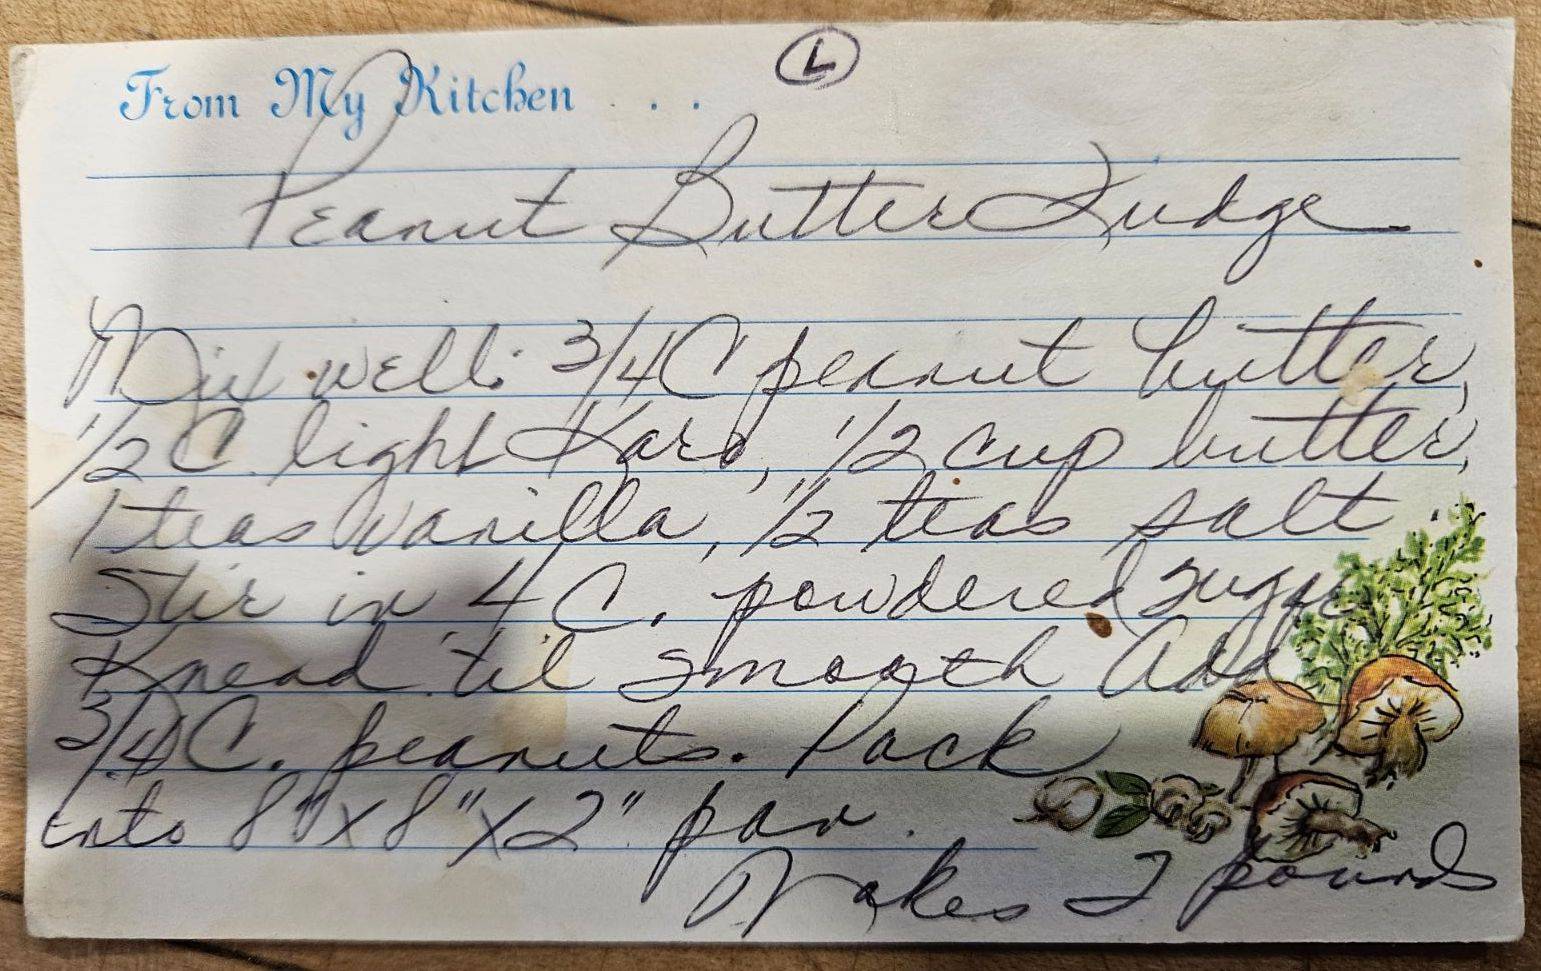 L
From My Kitchen . . .
Peanut Butter Fudge
Mix well: 3/4 C peanut butter,
1/2 C. light Karo, 1/2 cup butter,
1 teas vanilla, 1/2 teas salt.
Stir in 4 C. powdered sugar
Knead 'til smooth Add
3/4 C. peanuts. Pack
into 8" x 8" x 2" pan.
Makes 2 pounds